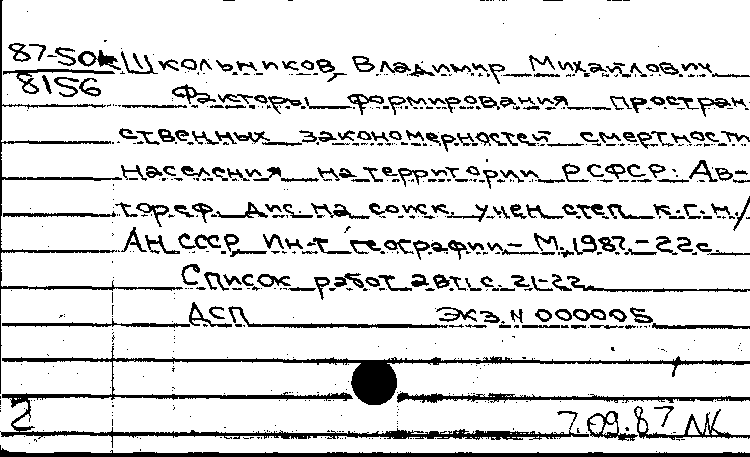 87-50к Школьников, Владимир Михайлович
8156
Факторы формирования простран
ственных закономерностей смертности
населения на территории РСФСР: Ав-
тореф. дис. на соиск. учен степ. к.г.н./
АН СССР, Ин-т географии.- М., 1987.-22с.
Список работ авт.: с. 21-22.
ДСП Экз. N 000005
2 7.09.87 NK